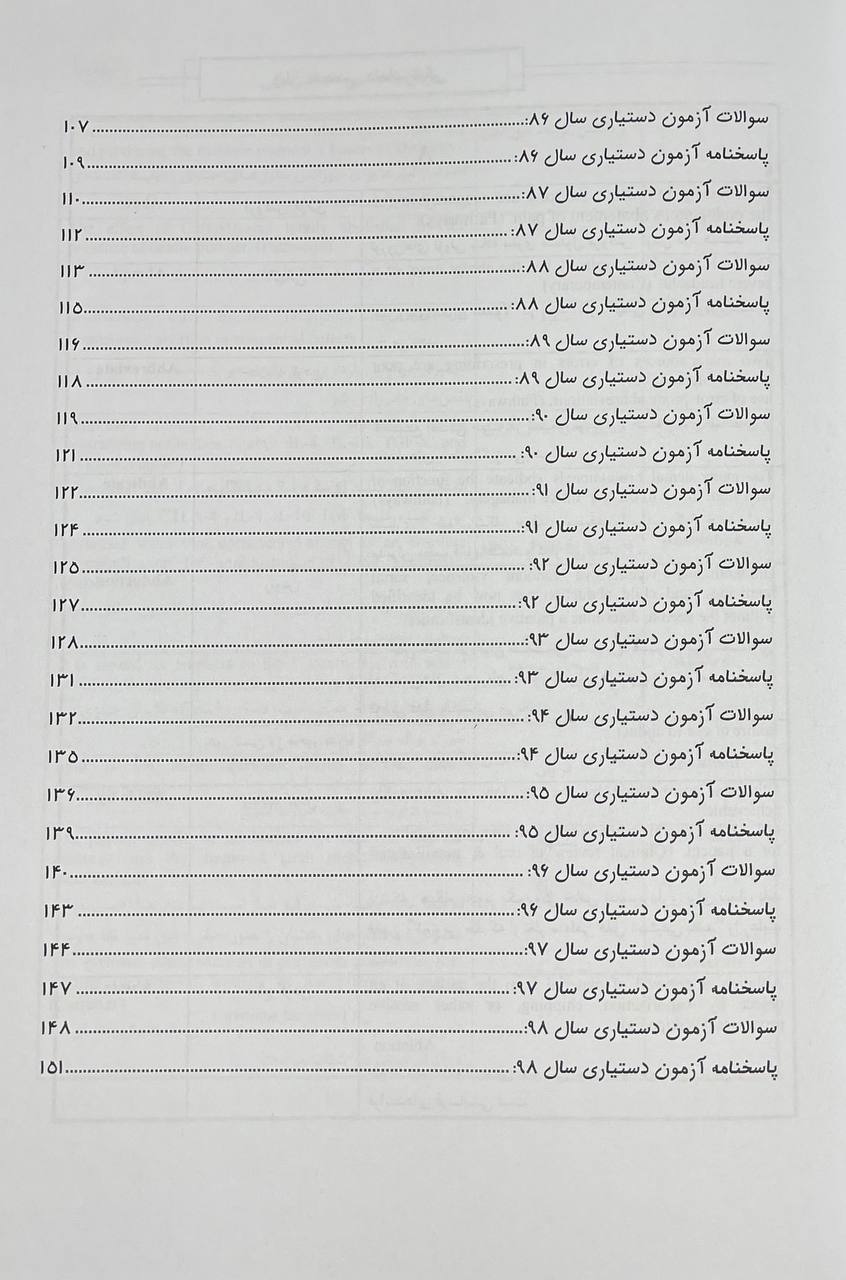 سوالات آزمون دستیاری سال ۸۶:........................ ۱۰۷
پاسخنامه آزمون دستیاری سال ۸۶:........................ ۱۰۹
سوالات آزمون دستیاری سال ۸۷:........................ ۱۱۰
پاسخنامه آزمون دستیاری سال ۸۷:........................ ۱۱۲
سوالات آزمون دستیاری سال ۸۸:........................ ۱۱۳
پاسخنامه آزمون دستیاری سال ۸۸:........................ ۱۱۵
سوالات آزمون دستیاری سال ۸۹:........................ ۱۱۶
پاسخنامه آزمون دستیاری سال ۸۹:........................ ۱۱۸
سوالات آزمون دستیاری سال ۹۰:........................ ۱۱۹
پاسخنامه آزمون دستیاری سال ۹۰:........................ ۱۲۱
سوالات آزمون دستیاری سال ۹۱:........................ ۱۲۲
پاسخنامه آزمون دستیاری سال ۹۱:........................ ۱۲۴
سوالات آزمون دستیاری سال ۹۲:........................ ۱۲۵
پاسخنامه آزمون دستیاری سال ۹۲:........................ ۱۲۷
سوالات آزمون دستیاری سال ۹۳:........................ ۱۲۸
پاسخنامه آزمون دستیاری سال ۹۳:........................ ۱۳۱
سوالات آزمون دستیاری سال ۹۴:........................ ۱۳۲
پاسخنامه آزمون دستیاری سال ۹۴:........................ ۱۳۵
سوالات آزمون دستیاری سال ۹۵:........................ ۱۳۶
پاسخنامه آزمون دستیاری سال ۹۵:........................ ۱۳۹
سوالات آزمون دستیاری سال ۹۶:........................ ۱۴۰
پاسخنامه آزمون دستیاری سال ۹۶:........................ ۱۴۳
سوالات آزمون دستیاری سال ۹۷:........................ ۱۴۴
پاسخنامه آزمون دستیاری سال ۹۷:........................ ۱۴۷
سوالات آزمون دستیاری سال ۹۸:........................ ۱۴۸
پاسخنامه آزمون دستیاری سال ۹۸:........................ ۱۵۱